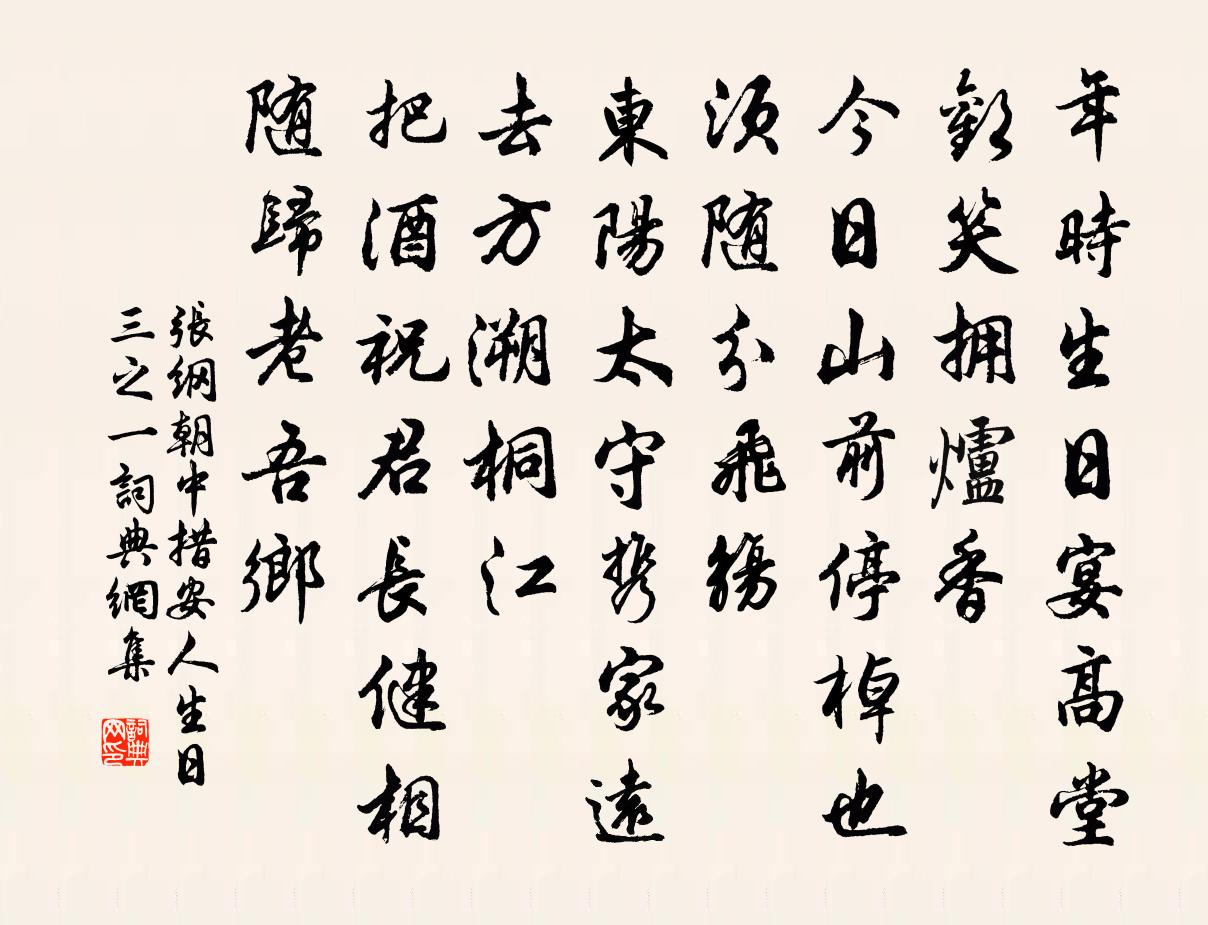 年時生日宴高堂
歡笑擁爐香
今日山前停棹也
須随分飛觴
東陽太守携家遠
去方溯桐江
把酒祝君長健相
随歸老吾鄉
張綱朝中措安人生日
三之一詞典網集
詞典网印